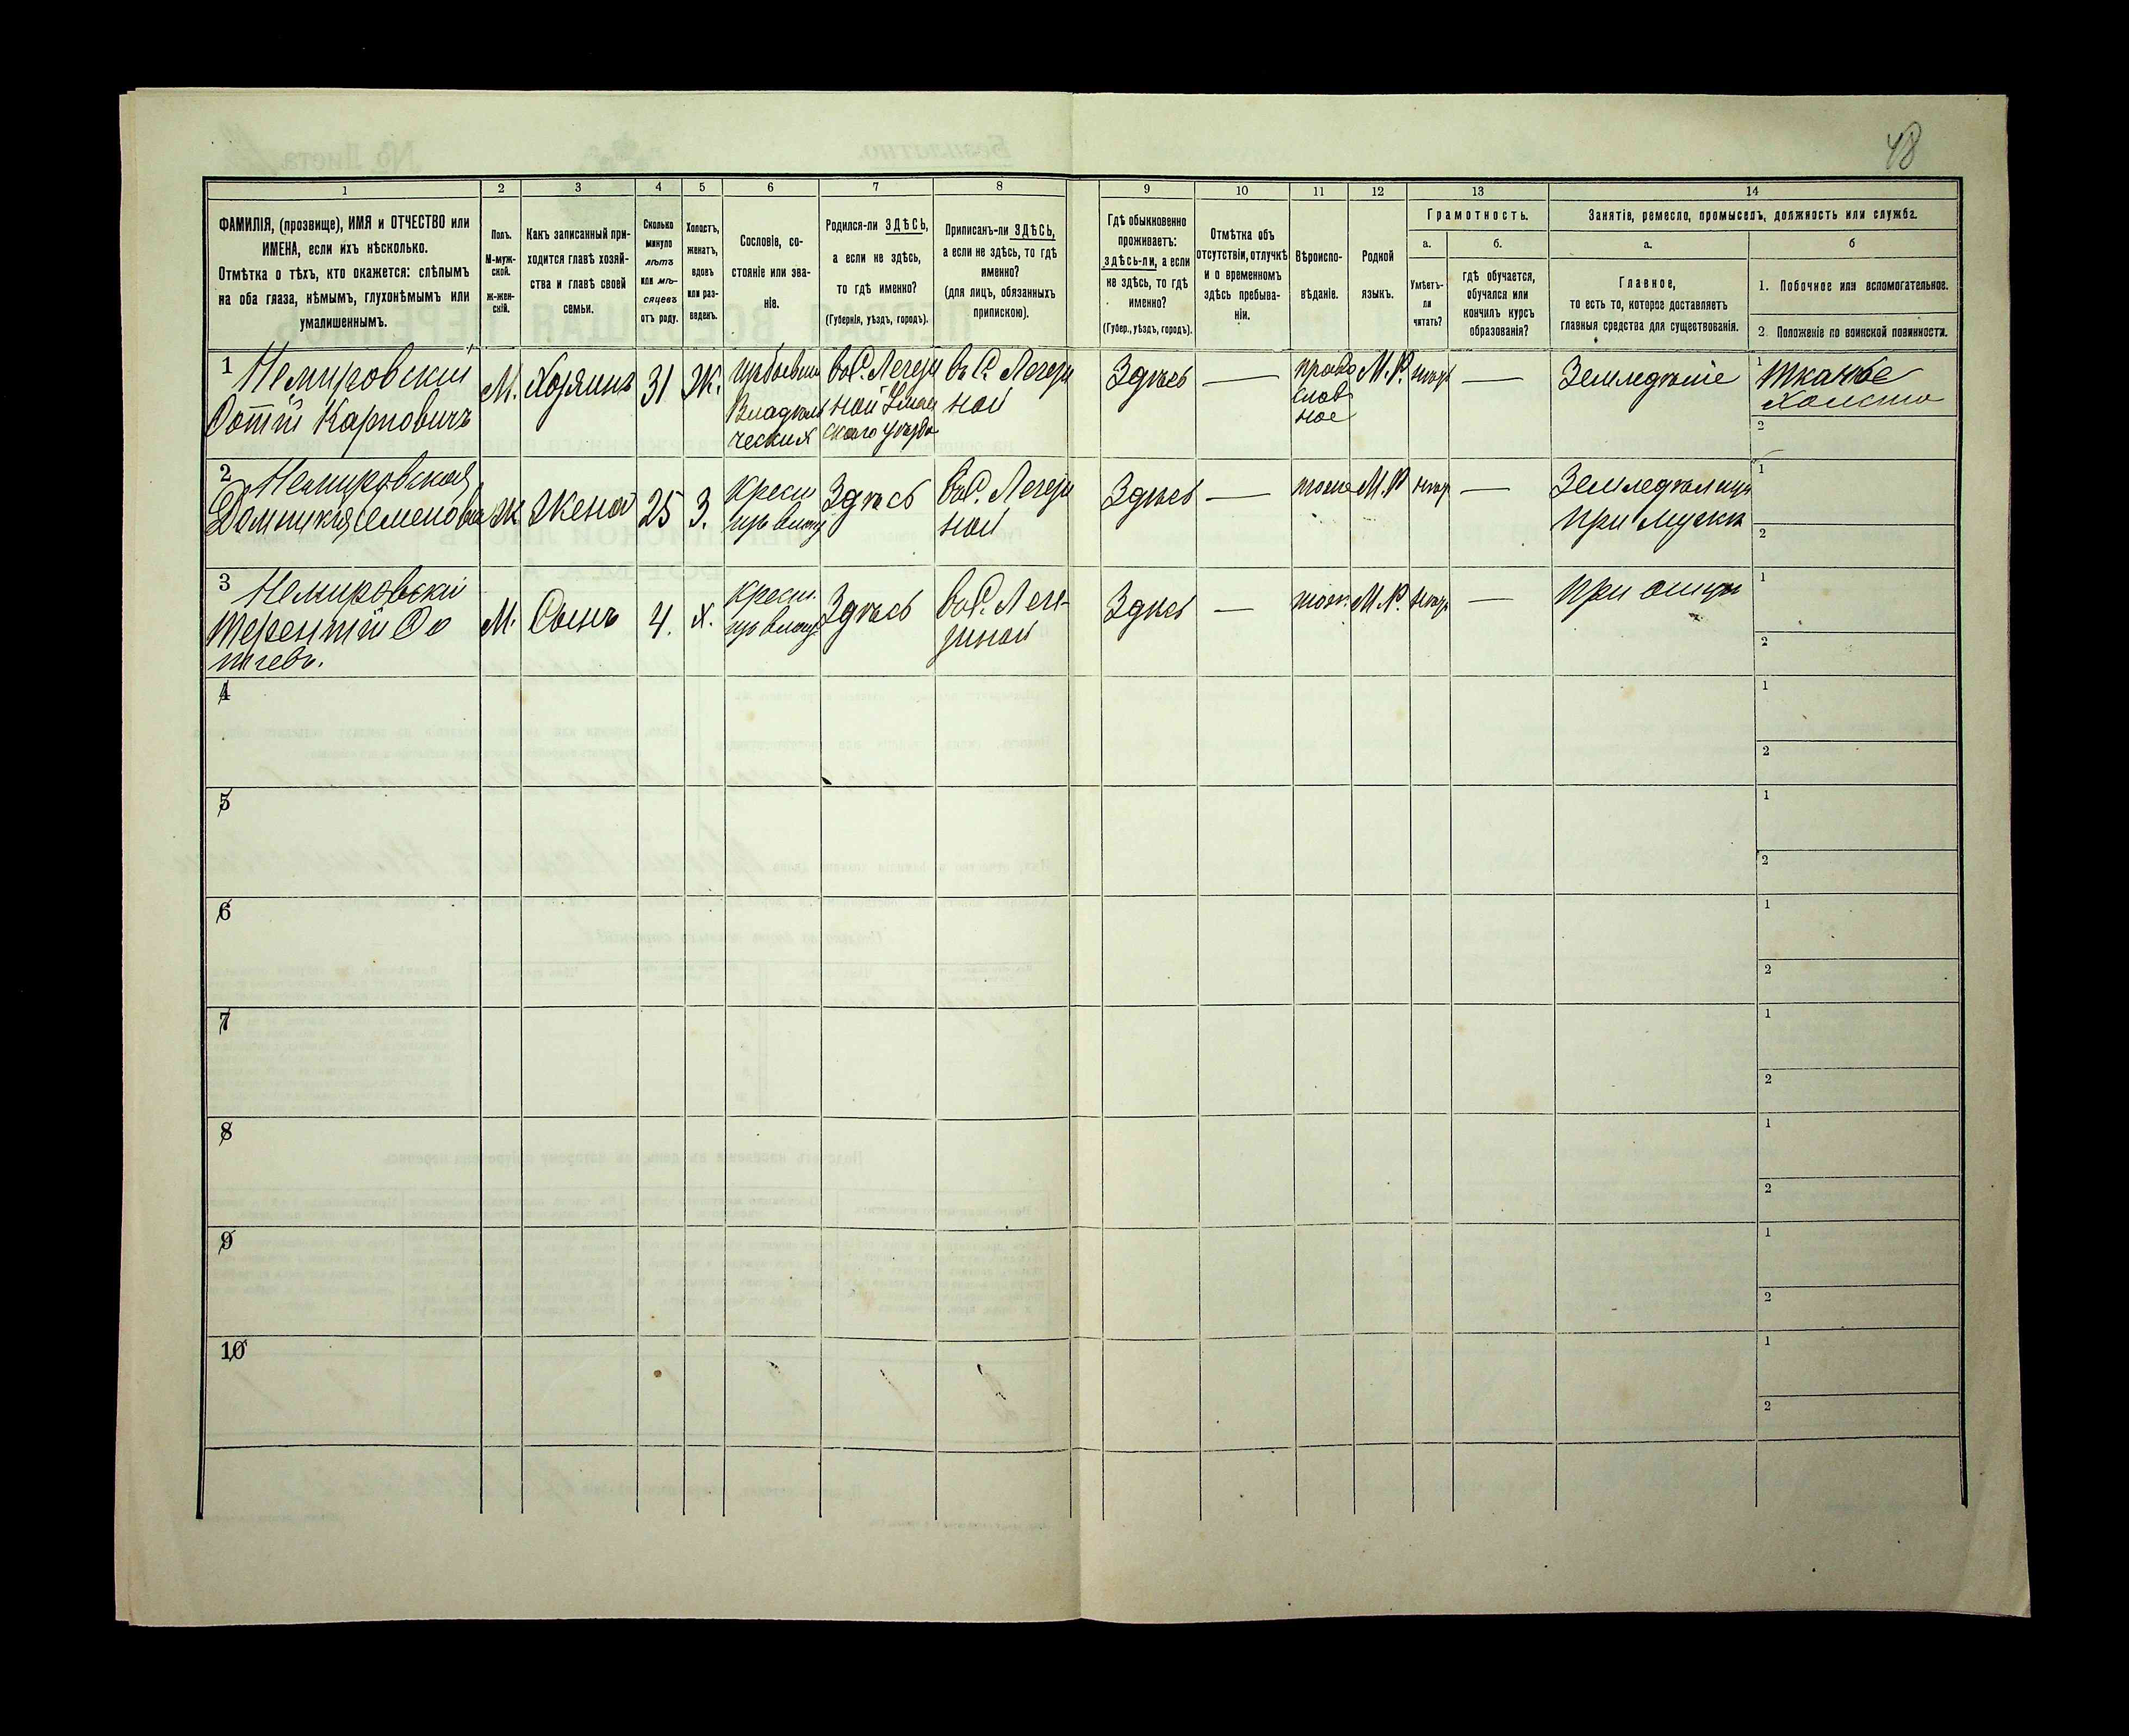 48
1 2 3 4 5 6 7 8 9 10 11 12 13 14
ФАМИЛІЯ, (прозвище), ИМЯ и ОТЧЕСТВО или
ИМЕНА, если ихъ нѣсколько.
Отмѣтка о тѣхъ, кто окажется: слѣпымъ
на оба глаза, нѣмымъ, глухонѣмымъ или
умалишеннымъ.
Полъ.
М-муж-
ской.
ж-жен-
скій.
Какъ записанный при-
ходится главѣ хозяй-
ства и главѣ своей
семьи.
Сколько
минуло
лѣтъ
или мѣ-
сяцевъ
отъ роду.
Холостъ,
женатъ,
вдовъ
или раз-
веденъ.
Сословіе, со-
стояніе или зва-
ніе.
Родился-ли ЗДѢСЬ,
а если не здѣсь,
то гдѣ именно?
(Губернія, уѣздъ, городъ).
Приписанъ-ли ЗДѢСЬ,
а если не здѣсь, то гдѣ
именно?
(для лицъ, обязанныхъ
припискою).
Гдѣ обыкновенно
проживаетъ:
здѣсь-ли, а если
не здѣсь, то гдѣ
именно?
(Губер., уѣздъ, городъ).
Отмѣтка объ
отсутствіи, отлучкѣ
и о временномъ
здѣсь пребыва-
ніи.
Вѣроиспо-
вѣданіе.
Родной
языкъ.
Грамотность.
а.
Умѣетъ-
ли
читать?
б.
гдѣ обучается,
обучался или
кончилъ курсъ
образованія?
Занятіе, ремесло, промыселъ, должность или служба.
а.
Главное,
то есть то, которое доставляетъ
главныя средства для существованія.
б
1. Побочное или вспомогательное.
2. Положеніе по воинской повинности.
1 Немировскій
Фотій Карповичъ
М.
Хозяинъ
31
Ж.
въ С. Легези
ной
въ С. Легези
ной
Здѣсь
—
право
слав
ное
М.Р.
—
Земледѣліе
1 Тканье
холста
2
2 Немировская
Домникія Семеновна
Ж
Жена
25
З.
Здѣсь
въ С. Легези
ной
Здѣсь
—
тоже
М.Р
—
Земледѣлица
при мужѣ
1
2
3 Немировскій
Терентій Фо
тіевъ.
М.
Сынъ
4.
Х.
Здѣсь
въ С. Леге-
зиной
Здѣсь
—
М.Р.
—
При отцѣ
1
2
4
1
2
5
1
2
6
1
2
7
1
2
8
1
2
9
1
2
10
1
2